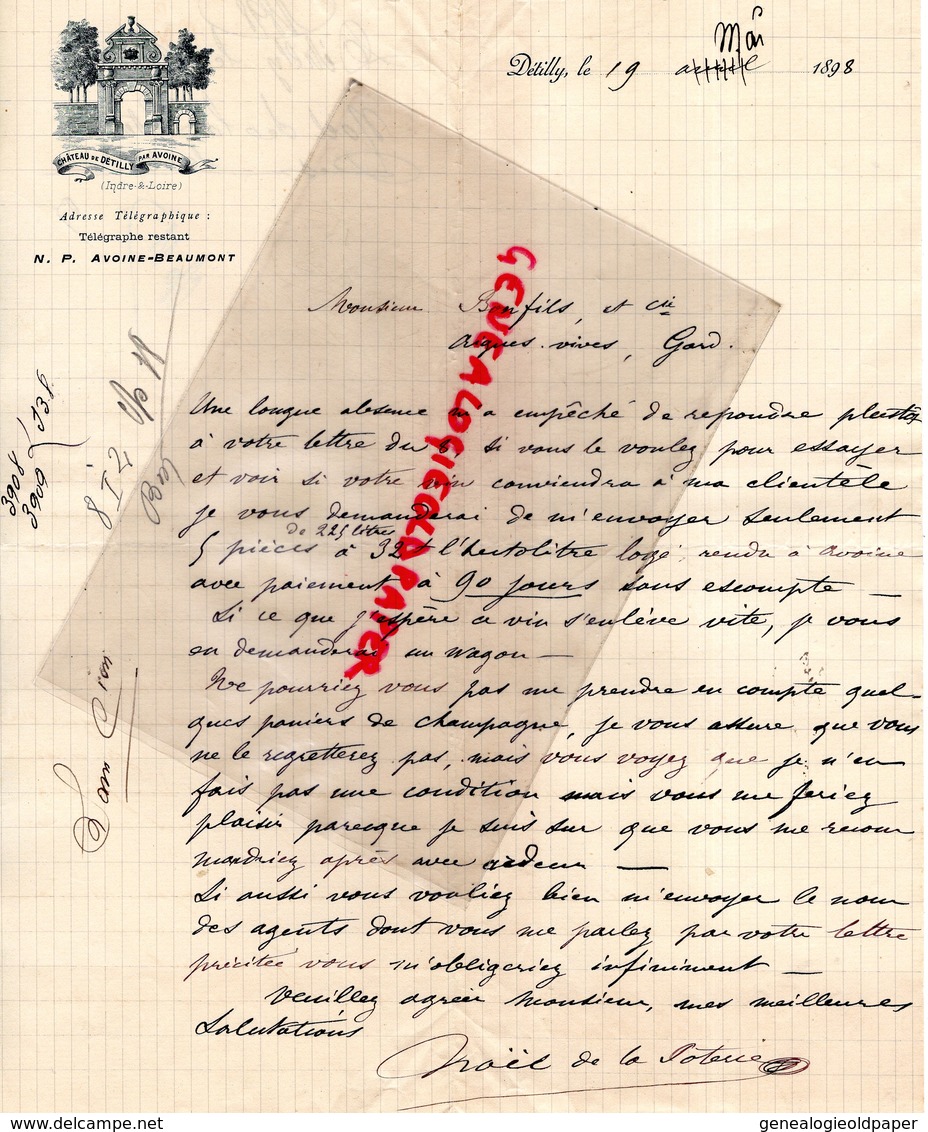 CHÂTEAU DE DÉTILLY PAR AVOINE
(Indre-&-Loire)
Adresse Télégraphique :
Télégraphe restant
N. P. AVOINE-BEAUMONT
Mai
Détilly, le 19 avril 1898
Monsieur Bonfils, et Cie
Aigues-vives, Gard.
Une longue absence m'a empêché de repondre plustot
à votre lettre du 6, si vous le voulez pour essayer
et voir si votre vin conviendra à ma clientèle
je vous demanderai de m'envoyer seulement
de 225 litres
5 pièces à 32 f l'hectolitre logé, rendu à Avoine
avec paiement à 90 jours sans escompte —
Si ce que j'espère ce vin s'enlève vite, je vous
en demanderai un wagon —
Ne pourriez vous pas me prendre en compte quel-
ques paniers de champagne, je vous assure que vous
ne le regretterez pas, mais vous voyez que je n'en
fais pas une condition mais vous me feriez
plaisir parceque je suis sur que vous me recom
manderiez après avec ardeur —
Si aussi vous vouliez bien m'envoyer le nom
des agents dont vous me parlez par votre lettre
précitée vous m'obligeriez infiniment —
Veuillez agréer Monsieur, mes meilleures
Salutations
Noël de la Poterie
3908
3909 } 138
GENEALOGIEOLDPAPER
genealogieoldpaper